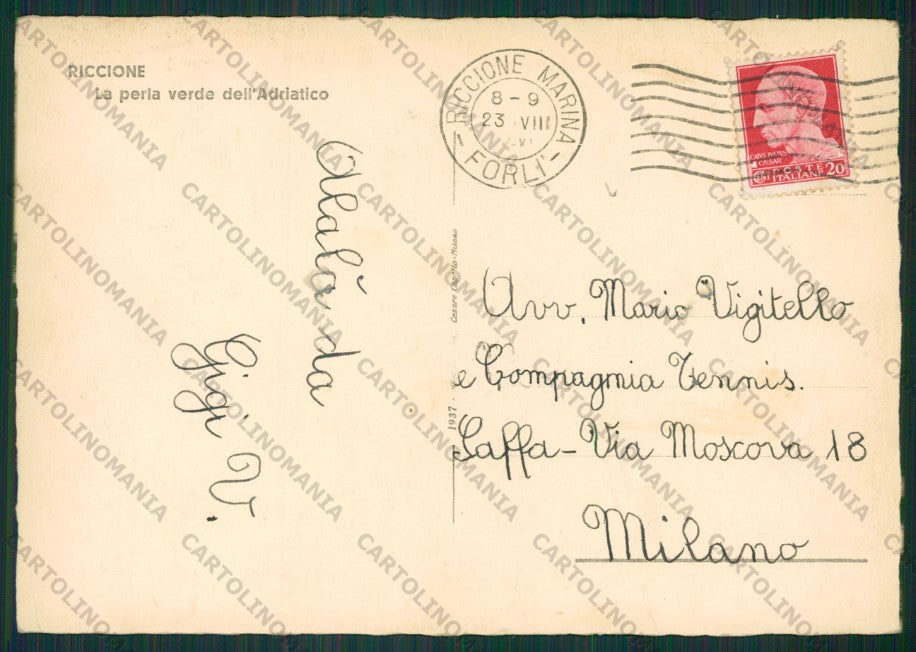 RICCIONE
La perla verde dell'Adriatico
RICCIONE MARINA
8-9
23 VIII
FORLI'
POSTE
ITALIANE
20
Alalà da
Gigi V.
1937
Avv. Mario Vigitello
e Compagnia Tennis.
Saffa - Via Moscova 18
Milano
CARTOLINOMANIA